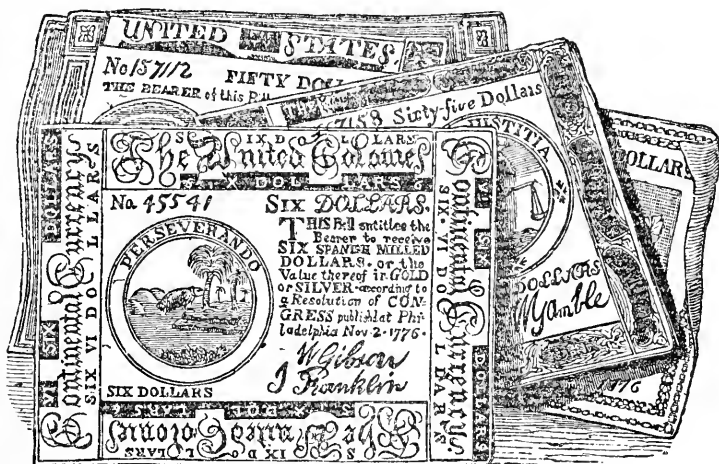 UNITED STATES
No 157112 FIFTY DOLL
THE BEARER of this Bill
7153 Sixty-five Dollars
JUSTITIA
DOLLARS
W Gamble
DOLLARS
1776
SIX DOLLARS
The United Colonies
SIX DOLLARS
Continental Currency
SIX VI DOLLARS
No 45541 SIX DOLLARS.
THIS Bill entitles the
Bearer to receive
SIX SPANISH MILLED
DOLLARS, or the
Value thereof in GOLD
or SILVER according to
a Resolution of CON-
GRESS publishd at Phi-
ladelphia Nov. 2. 1776.
PERSEVERANDO
W Gibson
J Franklin
SIX DOLLARS
Continental Currency
SIX VI DOLLARS
SIX DOLLARS
The United Colonies
SIX DOLLARS